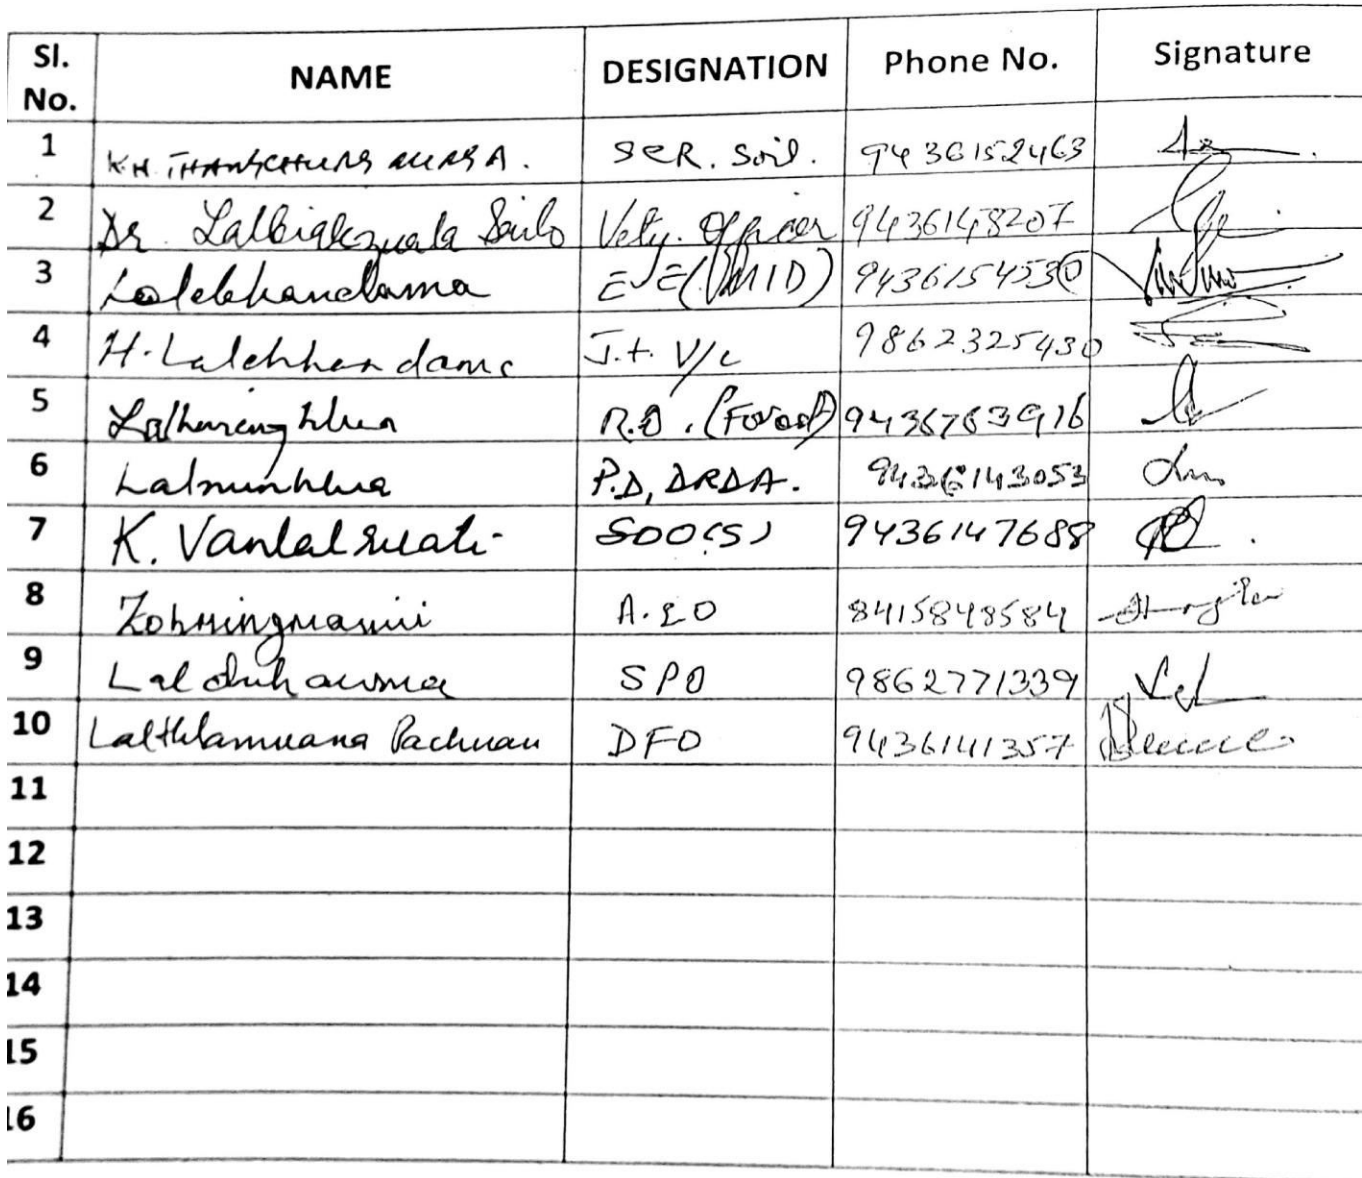 Sl. No. NAME DESIGNATION Phone No. Signature
1 KH. THANSCHUNG NUNGA. SCR. Soil. 9436152463
2 Dr. Lalbiakzuala Sailo Vety. Officer 9436148207
3 Lalchhandama EE 9436154530
4 H. Lalchhandama J.t. V/C 9862325430
5 R.O. (Forest) 9436763916
6 Lalnunhlua P.D, DRDA. 9436143053
7 K. Vanlalruati SDO(S) 9436147688
8 Zohmingmawii A.EO 8415848584
9 Lalduhawma SPO 9862771339
10 Lalthlamuana Pachuau DFO 9436141357
11
12
13
14
15
16